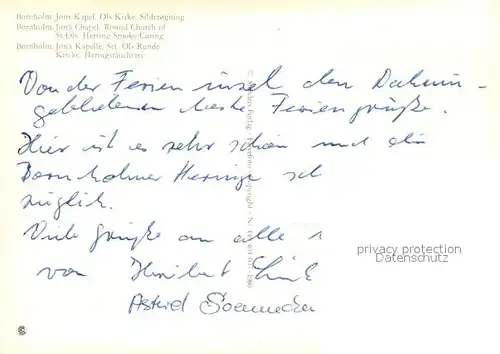 Bornholm. Jons Kapel. Ols Kirke. Silderøgning
Bornholm. Jon's Chapel. Round Church of
St. Ols. Herring Smoke-Curing
Bornholm. Jons Kapelle. Sct. Ols Runde
Kirche. Heringsräucherei
Von der Ferieninsel den Daheim-
gebliebenen beste Feriengrüße.
Hier ist es sehr schön und die
Bornholmer Heringe
züglich.
Viele Grüße an alle
von Heribert
Astrid
privacy protection
Datenschutz